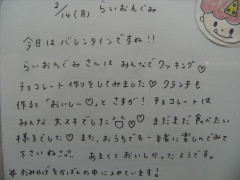 2/14(月) らいおんぐみ
今日はバレンタインですね!!
らいおんぐみさんはみんなでクッキング♡
チョコレート作りをしてみました♡クランチも
作ると"おいしー♡"とさすが!チョコレートは
みんな大スキでした♡まだまだ食べたい
様子でした♡また、おうちでも一緒に楽しんでみて
下さいね あまくておいしかったようです。
☆おみやげをかばんの中に入れています!